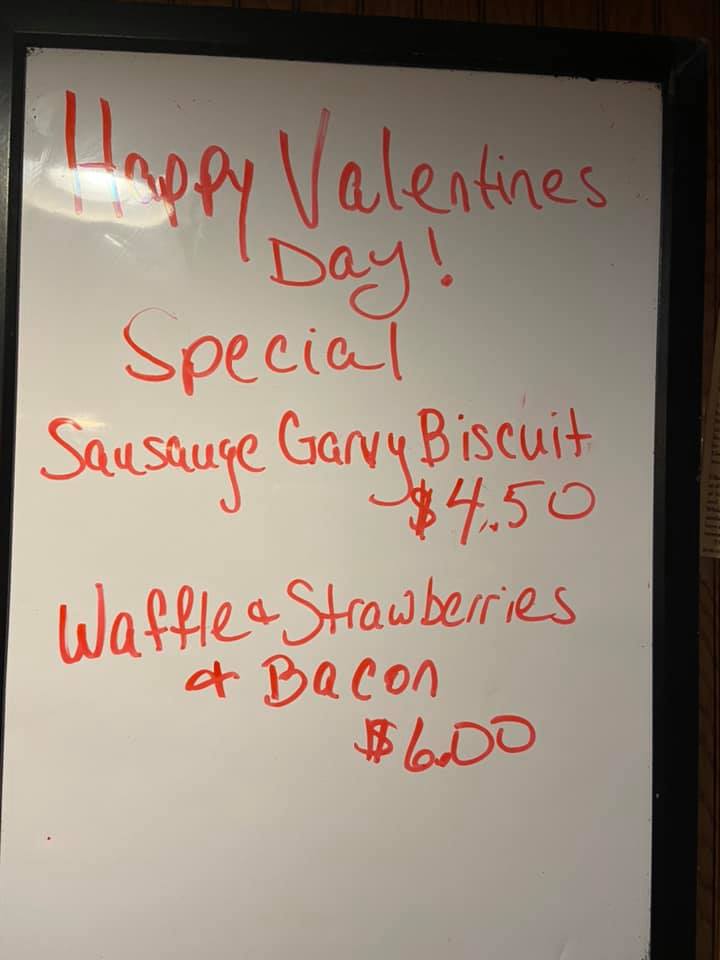 Happy Valentines
Day!
Special
Sausauge Garvy Biscuit
$4.50
Waffle & Strawberries
& Bacon
$6.00